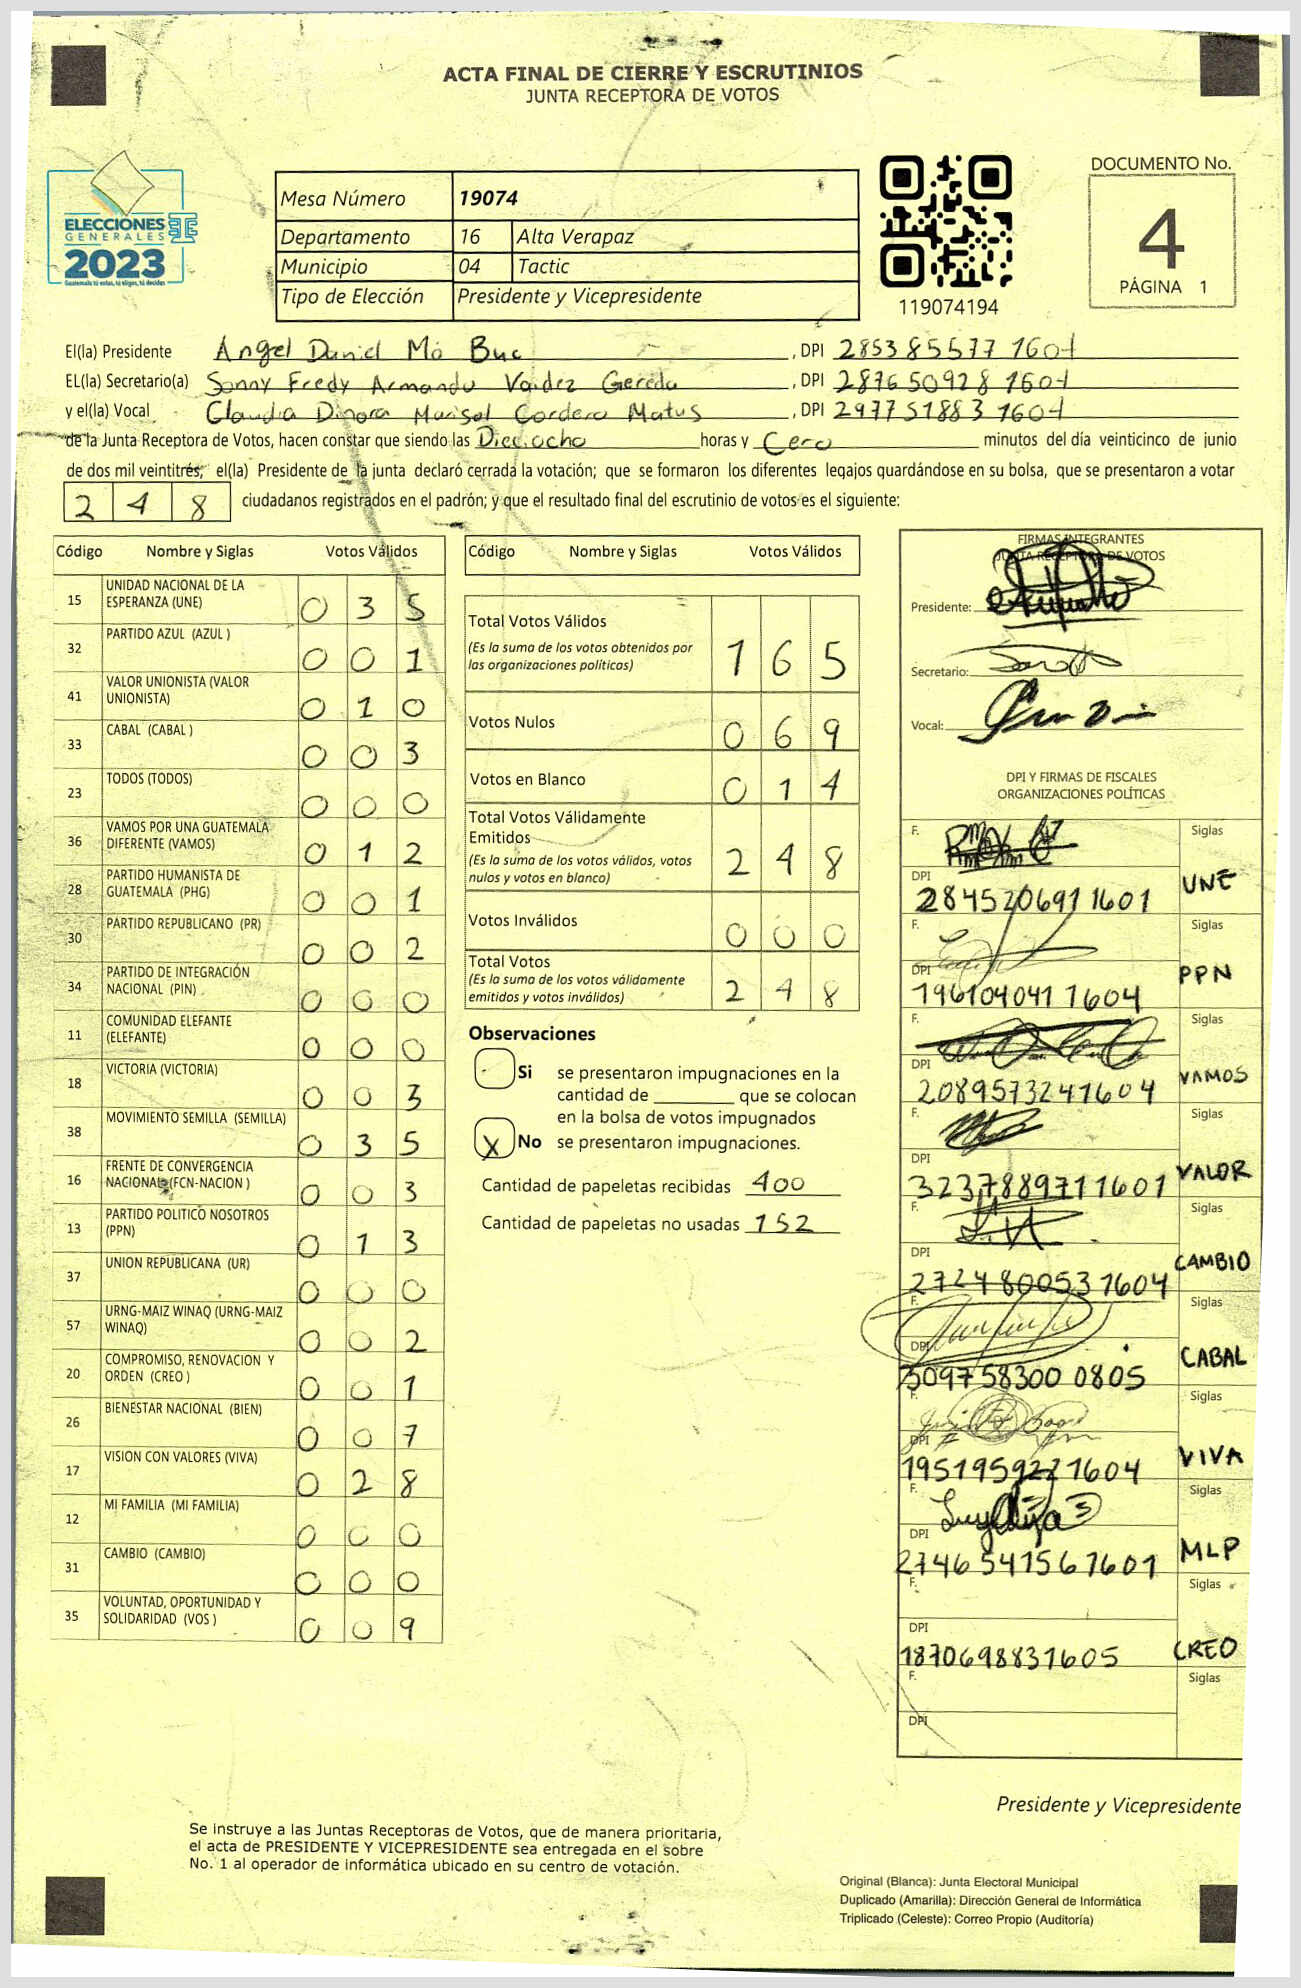 ACTA FINAL DE CIERRE Y ESCRUTINIOS
JUNTA RECEPTORA DE VOTOS
ELECCIONES
GENERALES
2023
Guatemala tú votas, tú eliges, tú decides
Mesa Número 19074
Departamento 16 Alta Verapaz
Municipio 04 Tactic
Tipo de Elección Presidente y Vicepresidente
119074194
DOCUMENTO No.
4
PÁGINA 1
El(la) Presidente Angel Daniel Mó Buc , DPI 285385577 1604
EL(la) Secretario(a) Sonny Fredy Armando Valdez Gereda , DPI 287650928 1604
y el(la) Vocal Claudia Dinora Marisol Cordero Matus , DPI 297751883 1604
de la Junta Receptora de Votos, hacen constar que siendo las Dieciocho horas y Cero minutos del día veinticinco de junio
de dos mil veintitrés; el(la) Presidente de la junta declaró cerrada la votación; que se formaron los diferentes legajos quardándose en su bolsa, que se presentaron a votar
2 4 8 ciudadanos registrados en el padrón; y que el resultado final del escrutinio de votos es el siguiente:
Código Nombre y Siglas Votos Válidos
15 UNIDAD NACIONAL DE LA ESPERANZA (UNE) 0 3 5
32 PARTIDO AZUL (AZUL ) 0 0 1
41 VALOR UNIONISTA (VALOR UNIONISTA) 0 1 0
33 CABAL (CABAL ) 0 0 3
23 TODOS (TODOS) 0 0 0
36 VAMOS POR UNA GUATEMALA DIFERENTE (VAMOS) 0 1 2
28 PARTIDO HUMANISTA DE GUATEMALA (PHG) 0 0 1
30 PARTIDO REPUBLICANO (PR) 0 0 2
34 PARTIDO DE INTEGRACIÓN NACIONAL (PIN) 0 0 0
11 COMUNIDAD ELEFANTE (ELEFANTE) 0 0 0
18 VICTORIA (VICTORIA) 0 0 3
38 MOVIMIENTO SEMILLA (SEMILLA) 0 3 5
16 FRENTE DE CONVERGENCIA NACIONAL (FCN-NACION ) 0 0 3
13 PARTIDO POLITICO NOSOTROS (PPN) 0 1 3
37 UNION REPUBLICANA (UR) 0 0 0
57 URNG-MAIZ WINAQ (URNG-MAIZ WINAQ) 0 0 2
20 COMPROMISO, RENOVACION Y ORDEN (CREO ) 0 0 1
26 BIENESTAR NACIONAL (BIEN) 0 0 7
17 VISION CON VALORES (VIVA) 0 2 8
12 MI FAMILIA (MI FAMILIA) 0 0 0
31 CAMBIO (CAMBIO) 0 0 0
35 VOLUNTAD, OPORTUNIDAD Y SOLIDARIDAD (VOS ) 0 0 9
Código Nombre y Siglas Votos Válidos
Total Votos Válidos
(Es la suma de los votos obtenidos por
las organizaciones políticas) 1 6 5
Votos Nulos 0 6 9
Votos en Blanco 0 1 4
Total Votos Válidamente
Emitidos
(Es la suma de los votos válidos, votos
nulos y votos en blanco) 2 4 8
Votos Inválidos 0 0 0
Total Votos
(Es la suma de los votos válidamente
emitidos y votos inválidos) 2 4 8
Observaciones
Si se presentaron impugnaciones en la
cantidad de ________ que se colocan
en la bolsa de votos impugnados
X No se presentaron impugnaciones.
Cantidad de papeletas recibidas 400
Cantidad de papeletas no usadas 152
FIRMAS INTEGRANTES
JUNTA RECEPTORA DE VOTOS
Presidente:
Secretario:
Vocal:
DPI Y FIRMAS DE FISCALES
ORGANIZACIONES POLÍTICAS
F. Siglas
DPI 2845206911601 UNE
F. Siglas
DPI 1961040411604 PPN
F. Siglas
DPI 2089573241604 VAMOS
F. Siglas
DPI 3237889711601 VALOR
F. Siglas
DPI 2724800531604 CAMBIO
F. Siglas
DPI 309758300 0805 CABAL
F. Siglas
DPI 1951959221604 VIVA
F. Siglas
DPI 2746541561601 MLP
F. Siglas
DPI 1870698831605 CREO
F. Siglas
DPI
Presidente y Vicepresidente
Se instruye a las Juntas Receptoras de Votos, que de manera prioritaria,
el acta de PRESIDENTE Y VICEPRESIDENTE sea entregada en el sobre
No. 1 al operador de informática ubicado en su centro de votación.
Original (Blanca): Junta Electoral Municipal
Duplicado (Amarilla): Dirección General de Informática
Triplicado (Celeste): Correo Propio (Auditoría)